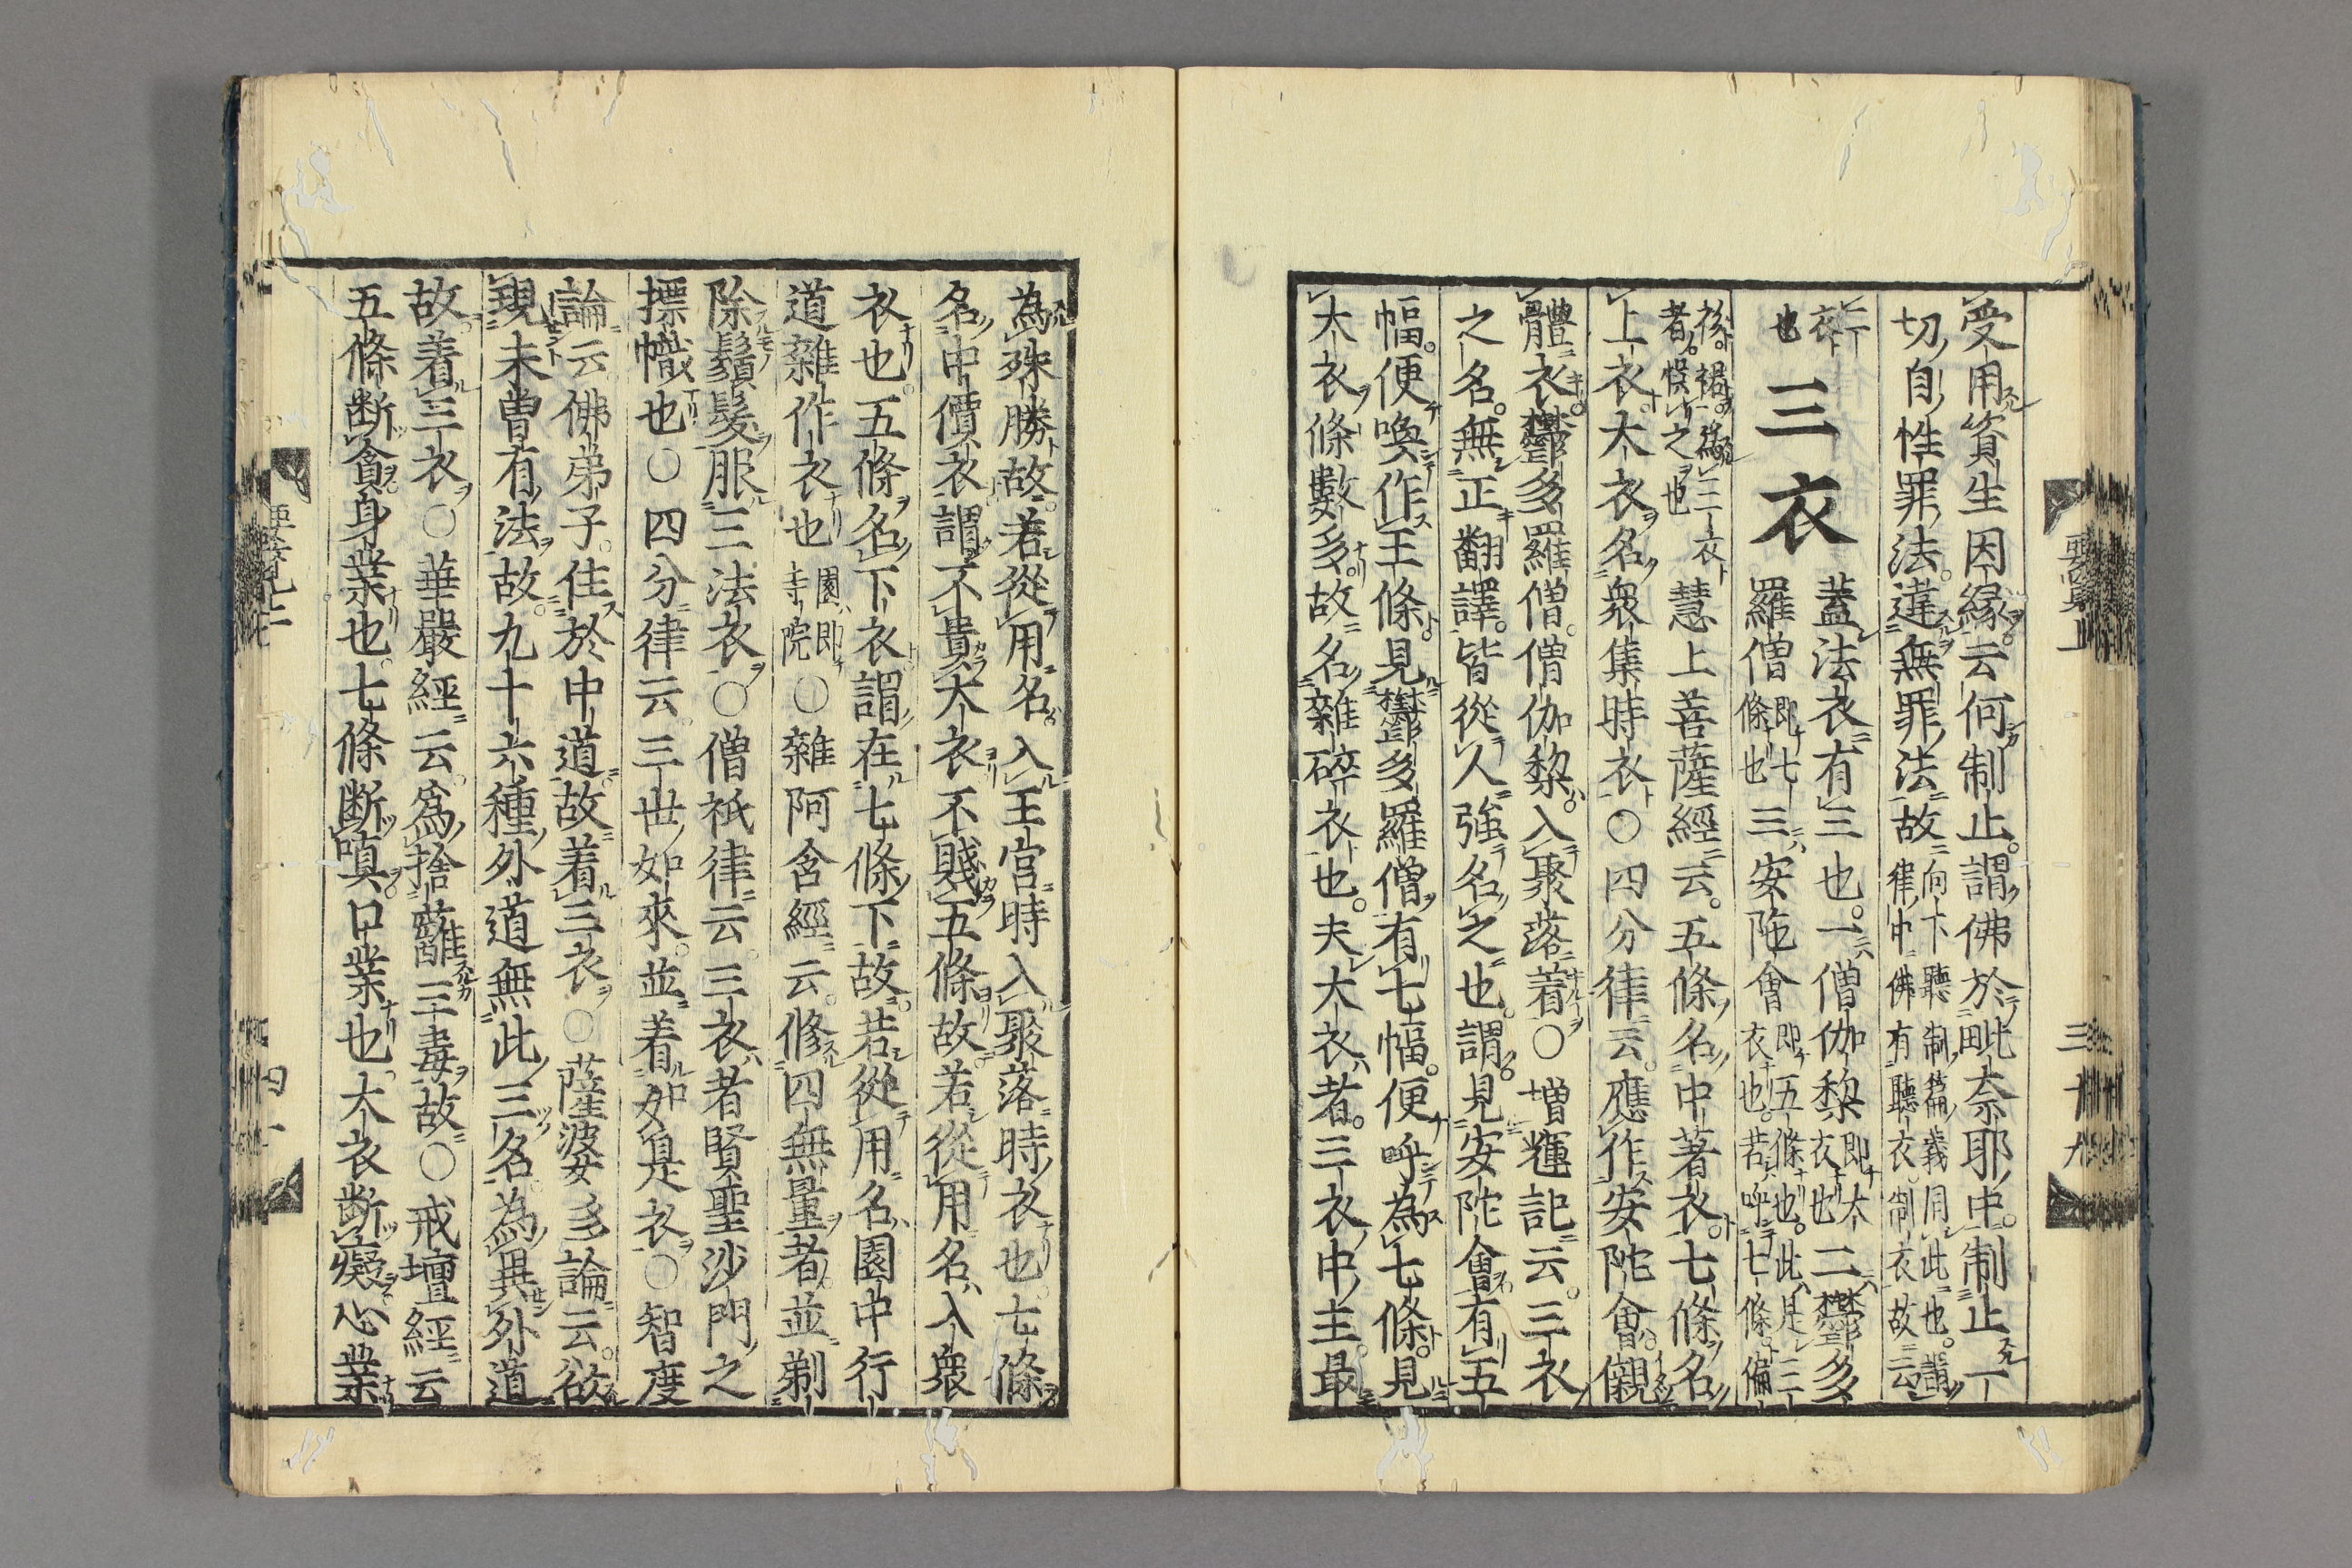 受用資生因緣云何制止。謂佛於毗奈耶中。制止一
切自性罪法。違無罪法故 向下聽制篇義同此也。謂律中佛有聽衣制衣故云
二衣也 三衣 蓋法衣有三也。一僧伽黎 即大衣也 二欝多
羅僧 即七條也 三安陁會 即五條也。此是三衣也。若呼七條偏
後裙為三衣者。悞之也 慧上菩薩經云。五條名中著衣。七條名
上衣。大衣名衆集時衣○四分律云。應作安陀會儭
體衣。欝多羅僧。僧伽黎。入聚落着○增輝記云。三衣
之名。無正翻譯。皆從人強名之也。謂見安陀會有五
幅。便喚作五條。見欝多羅僧有七幅。便呼為七條。見
大衣條數多。故名雜碎衣也。夫大衣者。三衣中主。最
為殊勝故。若從用名。入王宮時入聚落時衣也。七條
名中價衣。謂不貴大衣不賤五條故。若從用名入衆
衣也。五條名下衣。謂在七條下故。若從用名園中行
道雜作衣也 園即寺院 ○雜阿含經云。修四無量者。並剃
除鬚髮服三法衣○僧祇律云。三衣者賢聖沙門之
摽幟也○四分律云。三世如來。並着如是衣○智度
論云佛弟子。住於中道故。着三衣○薩婆多論云。欲
現未曾有法故。九十六種外道無此三名。為異外道
故。着三衣○華嚴經云。為捨離三毒故○戒壇經云
五條断貪。身業也。七條断嗔。口業也。大衣断癡。心業
要覽上
三十九
四十